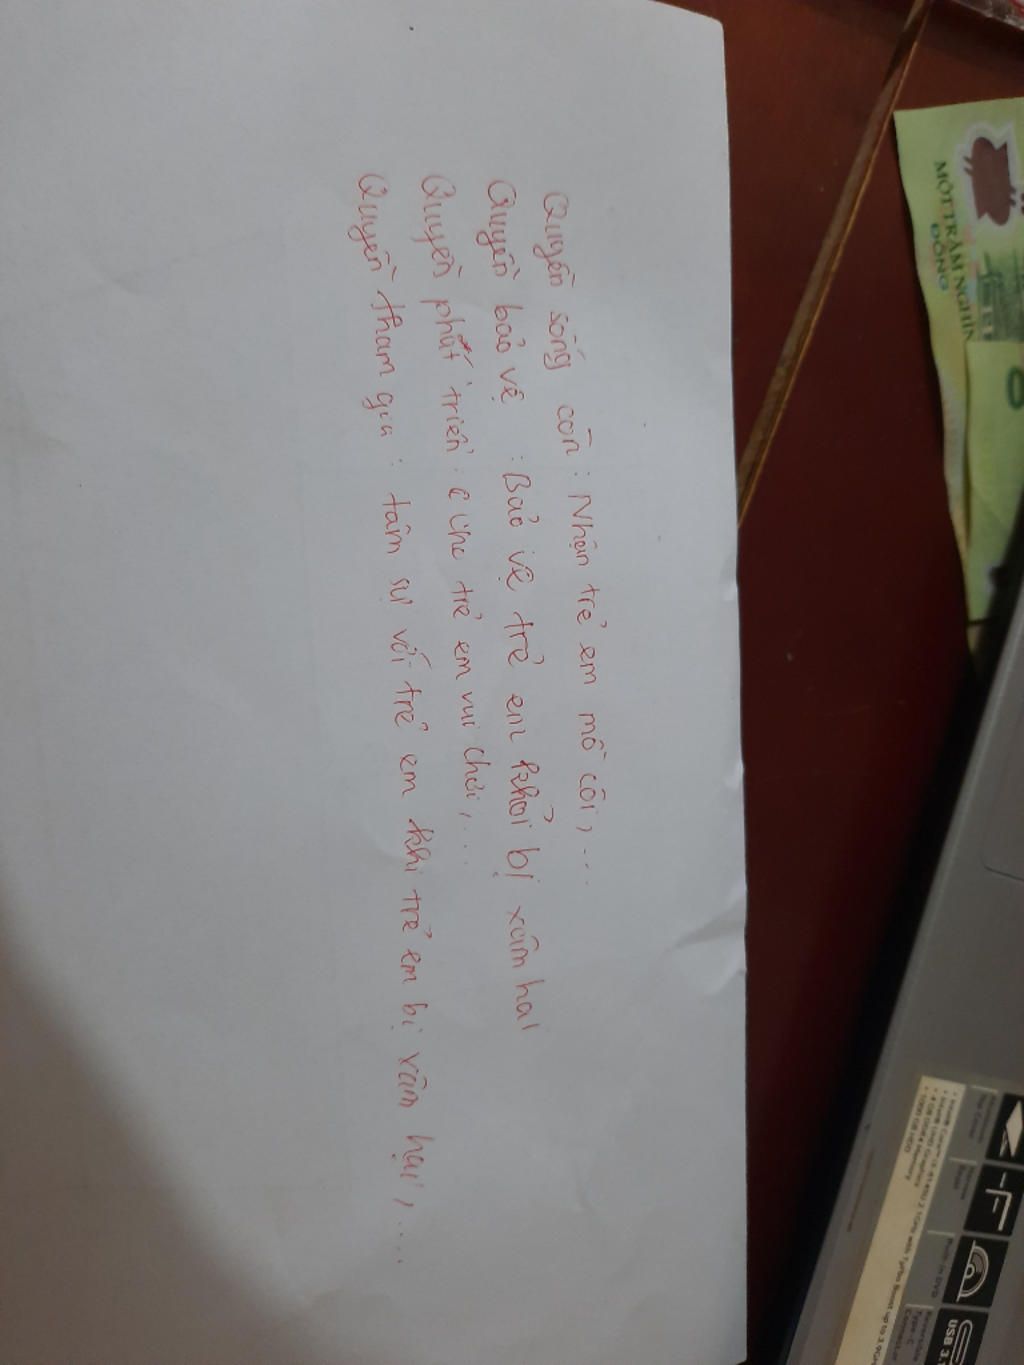 Quyền sống còn: Nhận trẻ em mồ côi,...
Quyền bảo vệ: Bảo vệ trẻ em khỏi bị xâm hại
Quyền phát triển: cho trẻ em vui chơi,...
Quyền tham gia: tâm sự với trẻ em khi trẻ em bị xâm hại,....
MỘT TRĂM NGHÌN
ĐỒNG
0
4 GB DDR4 Memory
1000 GB HDD
Built-in DVD
Type-C
USB 3.1